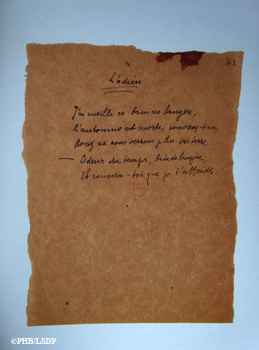 L'adieu
41
J'ai cueilli ce brin de bruyère
L'automne est morte, souviens-t'en,
Nous ne nous verrons plus sur terre
— Odeur du temps, brin de bruyère,
Et souviens-toi que je t'attends.
©PHB/LSDP